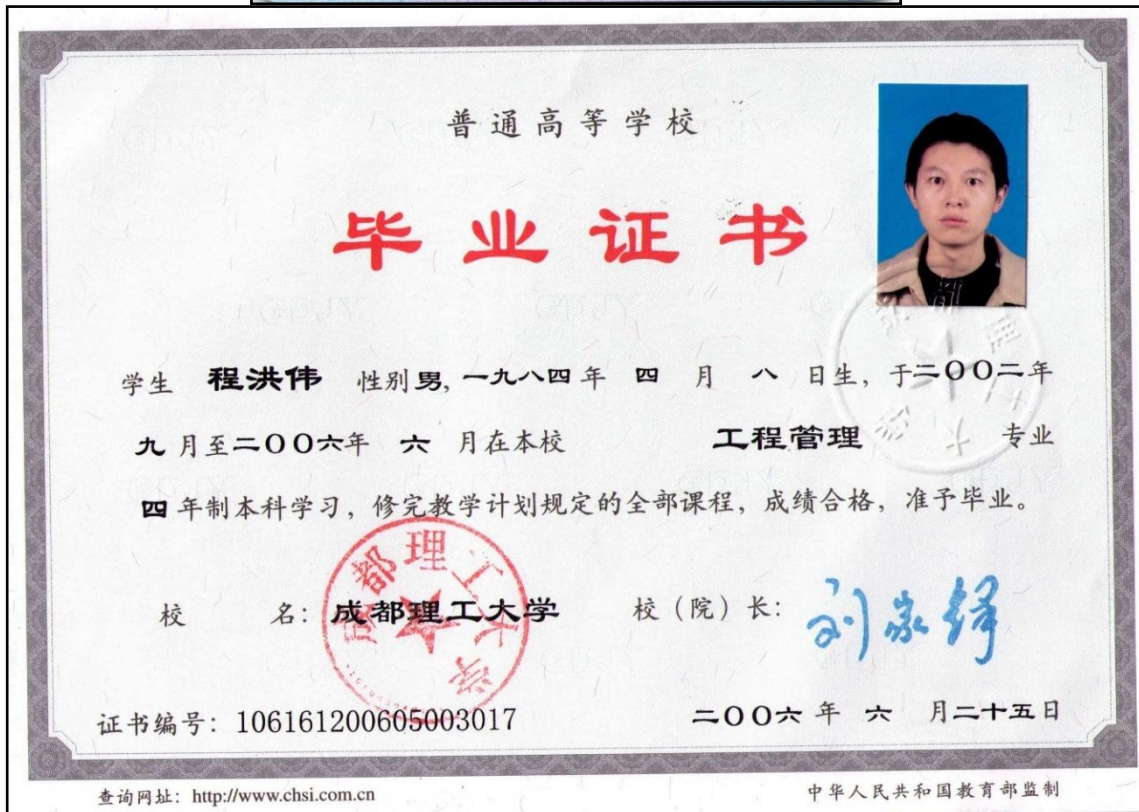 普通高等学校
毕业证书
学生 程洪伟 性别男, 一九八四年 四 月 八 日生, 于二〇〇二年
九月至二〇〇六年 六 月在本校 工程管理 专业
四年制本科学习, 修完教学计划规定的全部课程, 成绩合格, 准予毕业。
成都理工大学
校 名: 成都理工大学 校(院)长: 刘家铎
证书编号: 106161200605003017 二〇〇六年 六 月二十五日
查询网址: http://www.chsi.com.cn 中华人民共和国教育部监制